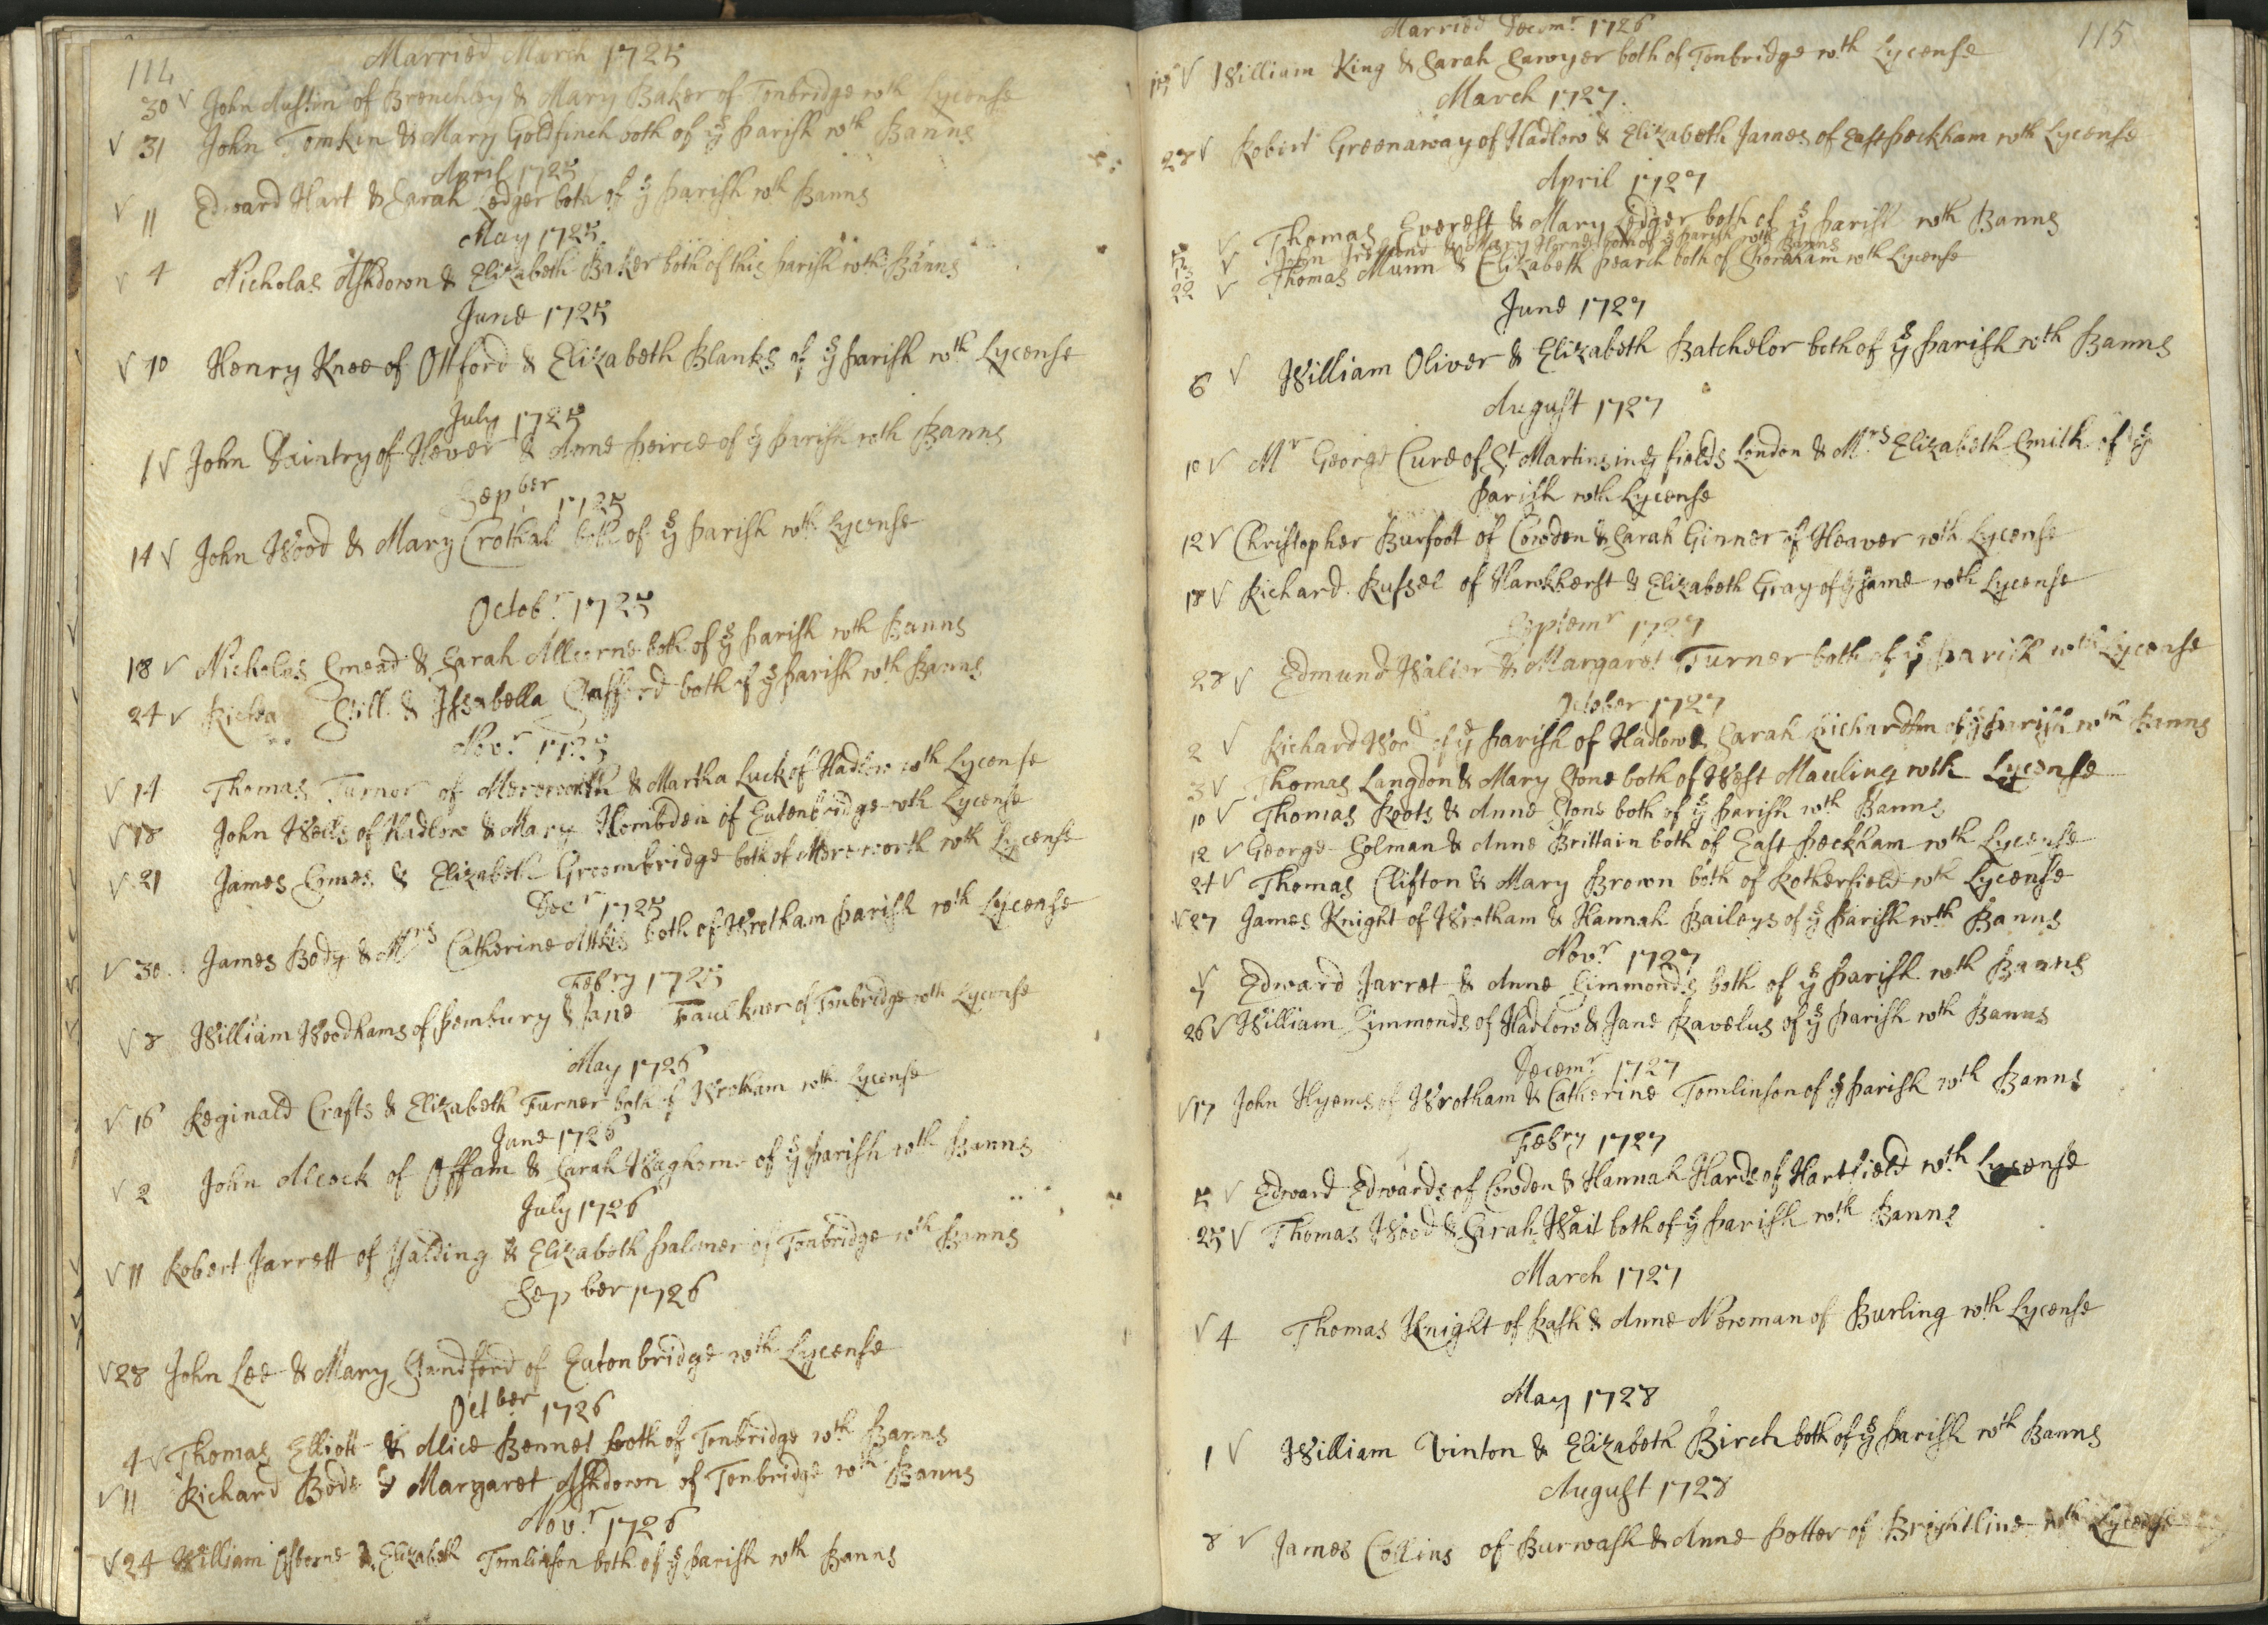 114
Married March 1725
30 John Austin of Brenchley & Mary Baker of Tonbridge wth Lycense
31 John Tomkin & Mary Goldfinch both of ys parish wth Banns
April 1725
11 Edward Hart & Sarah Ledger both of ys parish wth Banns
May 1725
4 Nicholas Ashdown & Elizabeth Baker both of this parish wth Banns
June 1725
10 Henry Knee of Ottford & Elizabeth Blanks of ys parish wth Lycense
July 1725
1 John Daintry of Hever & Anne peirce of ys parish wth Banns
Sepber 1725
14 John Wood & Mary Crothal both of ys parish wth Lycense
Octobr 1725
18 Nicholas Smead & Sarah Allcorne both of ys parish wth Banns
24 Still & Issabella Stafford both of ys parish wth Banns
Novr 1725
14 Thomas Turner of Mereworth & Martha Luck of Hadlow wth Lycense
18 John Wells of Hadlow & Mary Hombden of Eatenbridge wth Lycense
21 James Comes & Elizabeth Groombridge both of Mereworth wth Lycense
Decr 1725
30 James Body & Mrs Catherine both of Wrotham parish wth Lycense
Febry 1725
8 William Woodhams of pembury & Jane Faulkner of Tonbridge wth Lycense
May 1726
16 Reginald Crafts & Elizabeth Turner both of Wrotham wth Lycense
June 1726
2 John Alcock of Offam & Sarah Waghorne of ys parish wth Banns
July 1726
11 Robert Jarrett of Yalding & Elizabeth palmer of Tonbridge wth Banns
Sepber 1726
28 John Lee & Mary Standford of Eatonbridge wth Lycense
Octber 1726
4 Thomas Elliott & Alice Bennet both of Tonbridge wth Banns
11 Richard Bode & Margaret Ashdown of Tonbridge wth Banns
Novr 1726
24 William Osborne & Elizabeth Tomlinson both of ys parish wth Banns
115
Married Decemr 1726
15 William King & Sarah Sawyer both of Tonbridge wth Lycense
March 1727
28 Robert Greenaway of Hadlow & Elizabeth James of East peckham wth Lycense
April 1727
5 Thomas Everest & Mary Ledger both of ys parish wth Banns
13 John & Mary Horne both of ys parish wth Banns
22 Thomas Munn & Elizabeth pearch both of Shoreham wth Lycense
June 1727
6 William Oliver & Elizabeth Batchelor both of ys parish wth Banns
August 1727
10 Mr George Cure of St Martins in ye fields London & Mrs Elizabeth Smith of ys
parish wth Lycense
12 Christopher Burfoot of Cowden & Sarah Ginner of Heaver wth Lycense
18 Richard Russel of Hawkherst & Elizabeth Gray of ye same wth Lycense
Septemr 1727
28 Edmund Walter & Margaret Turner both of ys parish wth Lycense
October 1727
2 Richard Wood of ye parish of Hadlow & Sarah Richardson of ys parish wth Banns
3 Thomas Langdon & Mary Stone both of West Mauling wth Lycense
10 Thomas Roots & Anne Stone both of ys parish wth Banns
12 George Solman & Anne Brittain both of East peckham wth Lycense
24 Thomas Clifton & Mary Brown both of Rotherfield wth Lycense
27 James Knight of Wrotham & Hannah Baileys of ys parish wth Banns
Novr 1727
5 Edward Jarret & Anne Simmonds both of ys parish wth Banns
26 William Simmonds of Hadlow & Jane Ravelus of ys parish wth Banns
Decemr 1727
17 John Hyems of Wrotham & Catherine Tomlinson of ys parish wth Banns
Febry 1727
5 Edward Edwards of Cowden & Hannah Hards of Hartfield wth Lycense
25 Thomas Wood & Sarah Wait both of ys parish wth Banns
March 1727
4 Thomas Knight of Rash & Anne Newman of Burling wth Lycense
May 1728
1 William Vinton & Elizabeth Birch both of ys parish wth Banns
August 1728
8 James Collins of Burwash & Anne potter of Brightline wth Lycense